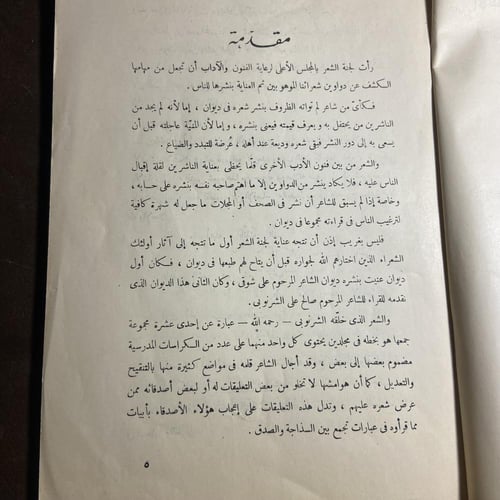 مقدمة
رأت لجنة الشعر بالمجلس الأعلى لرعاية الفنون والآداب أن تجعل من مهامها
الكشف عن دواوين شعرائنا الموهوبين ثم العناية بنشرها للناس .
فكأى من شاعر لم تواته الظروف بنشر شعره فى ديوان ، إما لأنه لم يجد من
الناشرين من يحتفل به ويعرف قيمته فيعنى بنشره ، وإما لأن المنيّة عاجلته قبل أن
يسعى به إلى دور النشر فبقى شعره وديعة عند أهله ، عرضة للتبدد والضياع .
والشعر من بين فنون الأدب الأخرى قلّما يحظى بعناية الناشرين لقلة إقبال
الناس عليه ، فلا يكاد ينشر من الدواوين إلا ما اهتم صاحبه نفسه بنشره على حسابه ،
وخاصة إذا لم يسبق للشاعر أن نشر فى الصحف أو المجلات ما جعل له شهرة كافية
لترغيب الناس فى قراءته مجموعا فى ديوان .
فليس بغريب إذن أن تتجه عناية لجنة الشعر أول ما تتجه إلى آثار أولئك
الشعراء الذين اختارهم الله لجواره قبل أن يتاح لهم طبعها فى ديوان ، فكان أول
ديوان عنيت بنشره ديوان الشاعر المرحوم على شوقى ، وكان الثانى هذا الديوان الذى
نقدمه للقراء للشاعر المرحوم صالح على الشرنوبى .
والشعر الذى خلّفه الشرنوبى — رحمه الله — عبارة عن إحدى عشرة مجموعة
جمعها هو بخطه فى مجلدين يحتوى كل واحد منهما على عدد من الكراسات المدرسية
مضموم بعضها إلى بعض ، وقد أجال الشاعر قلمه فى مواضع كثيرة منها بالتنقيح
والتعديل ، كما أن هوامشها لا تخلو من بعض التعليقات له أو لبعض أصدقائه ممن
عرض شعره عليهم ، وتدل هذه التعليقات على إعجاب هؤلاء الأصدقاء بأبيات
مما قرأوه فى عبارات تجمع بين السذاجة والصدق .
٥